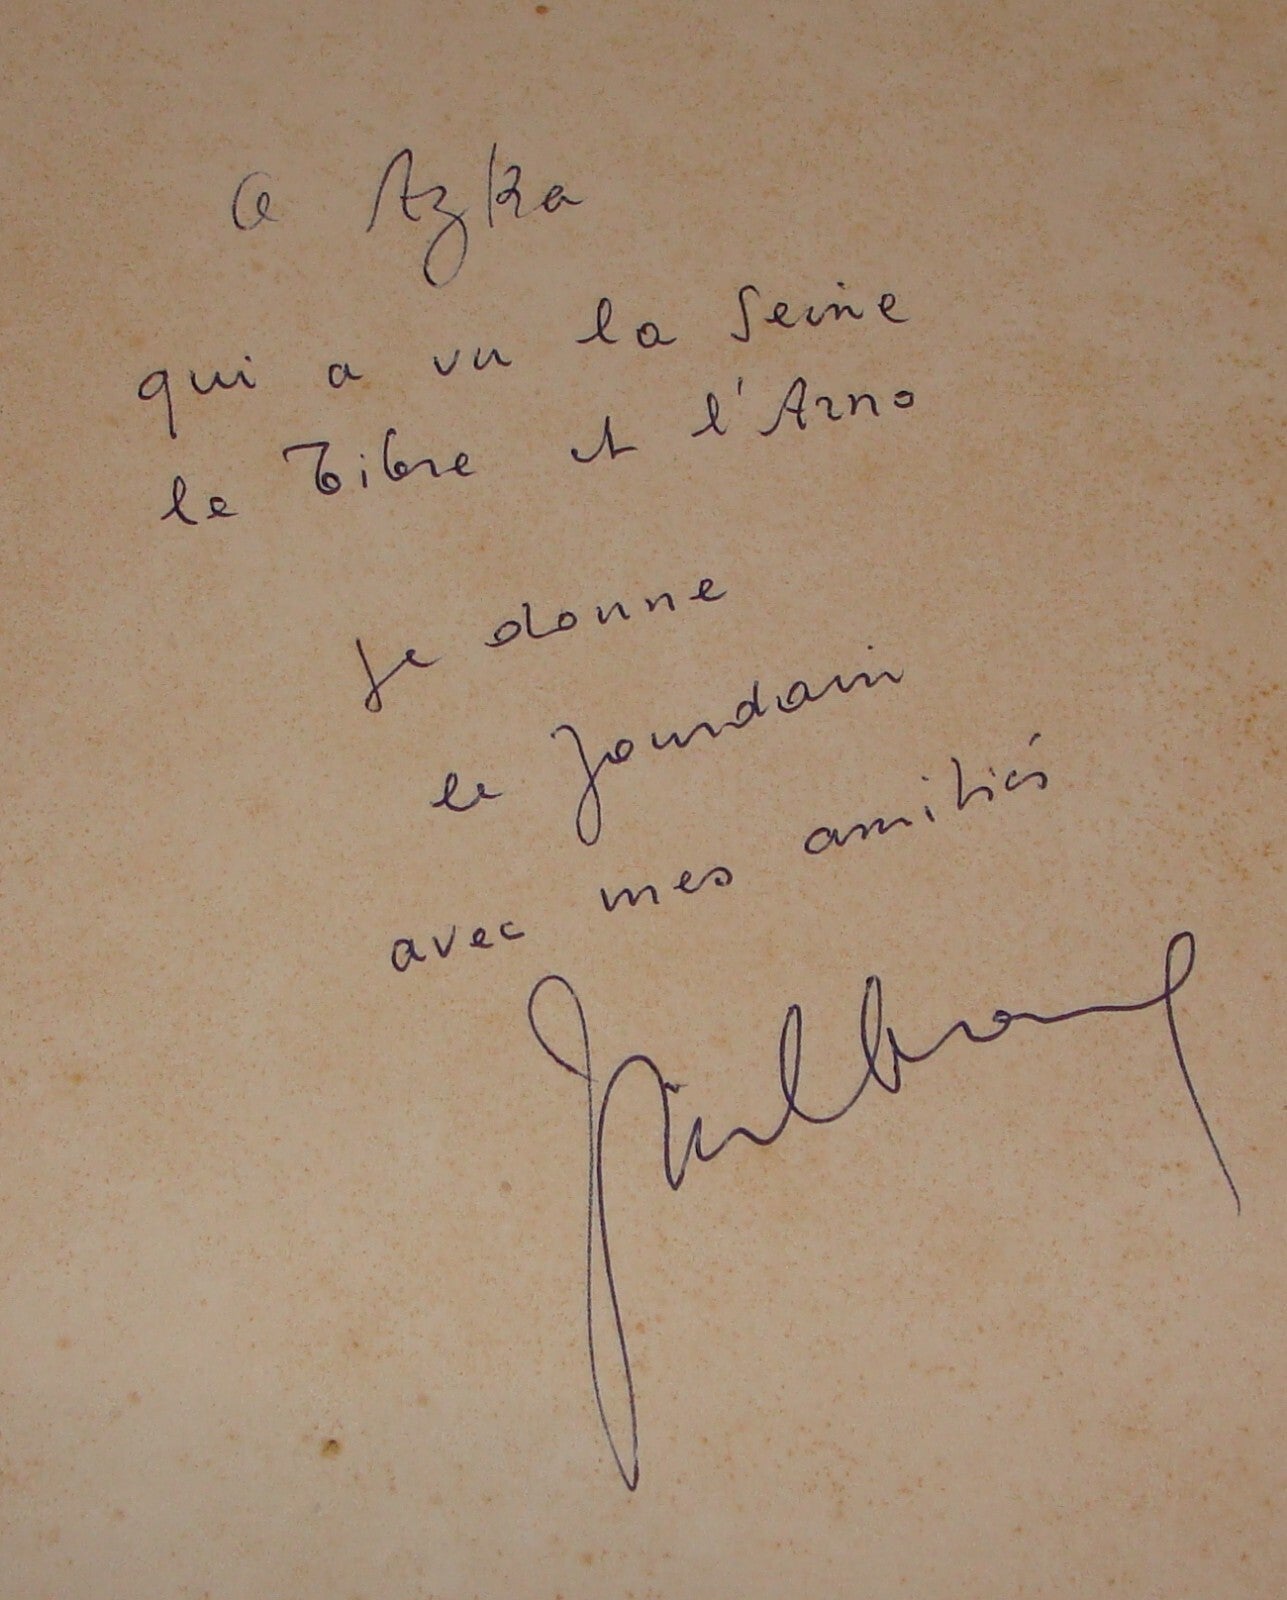 a Azka
qui a vu la Seine
le Tibre et l'Arno
je donne
le Jourdain
avec mes amitiés